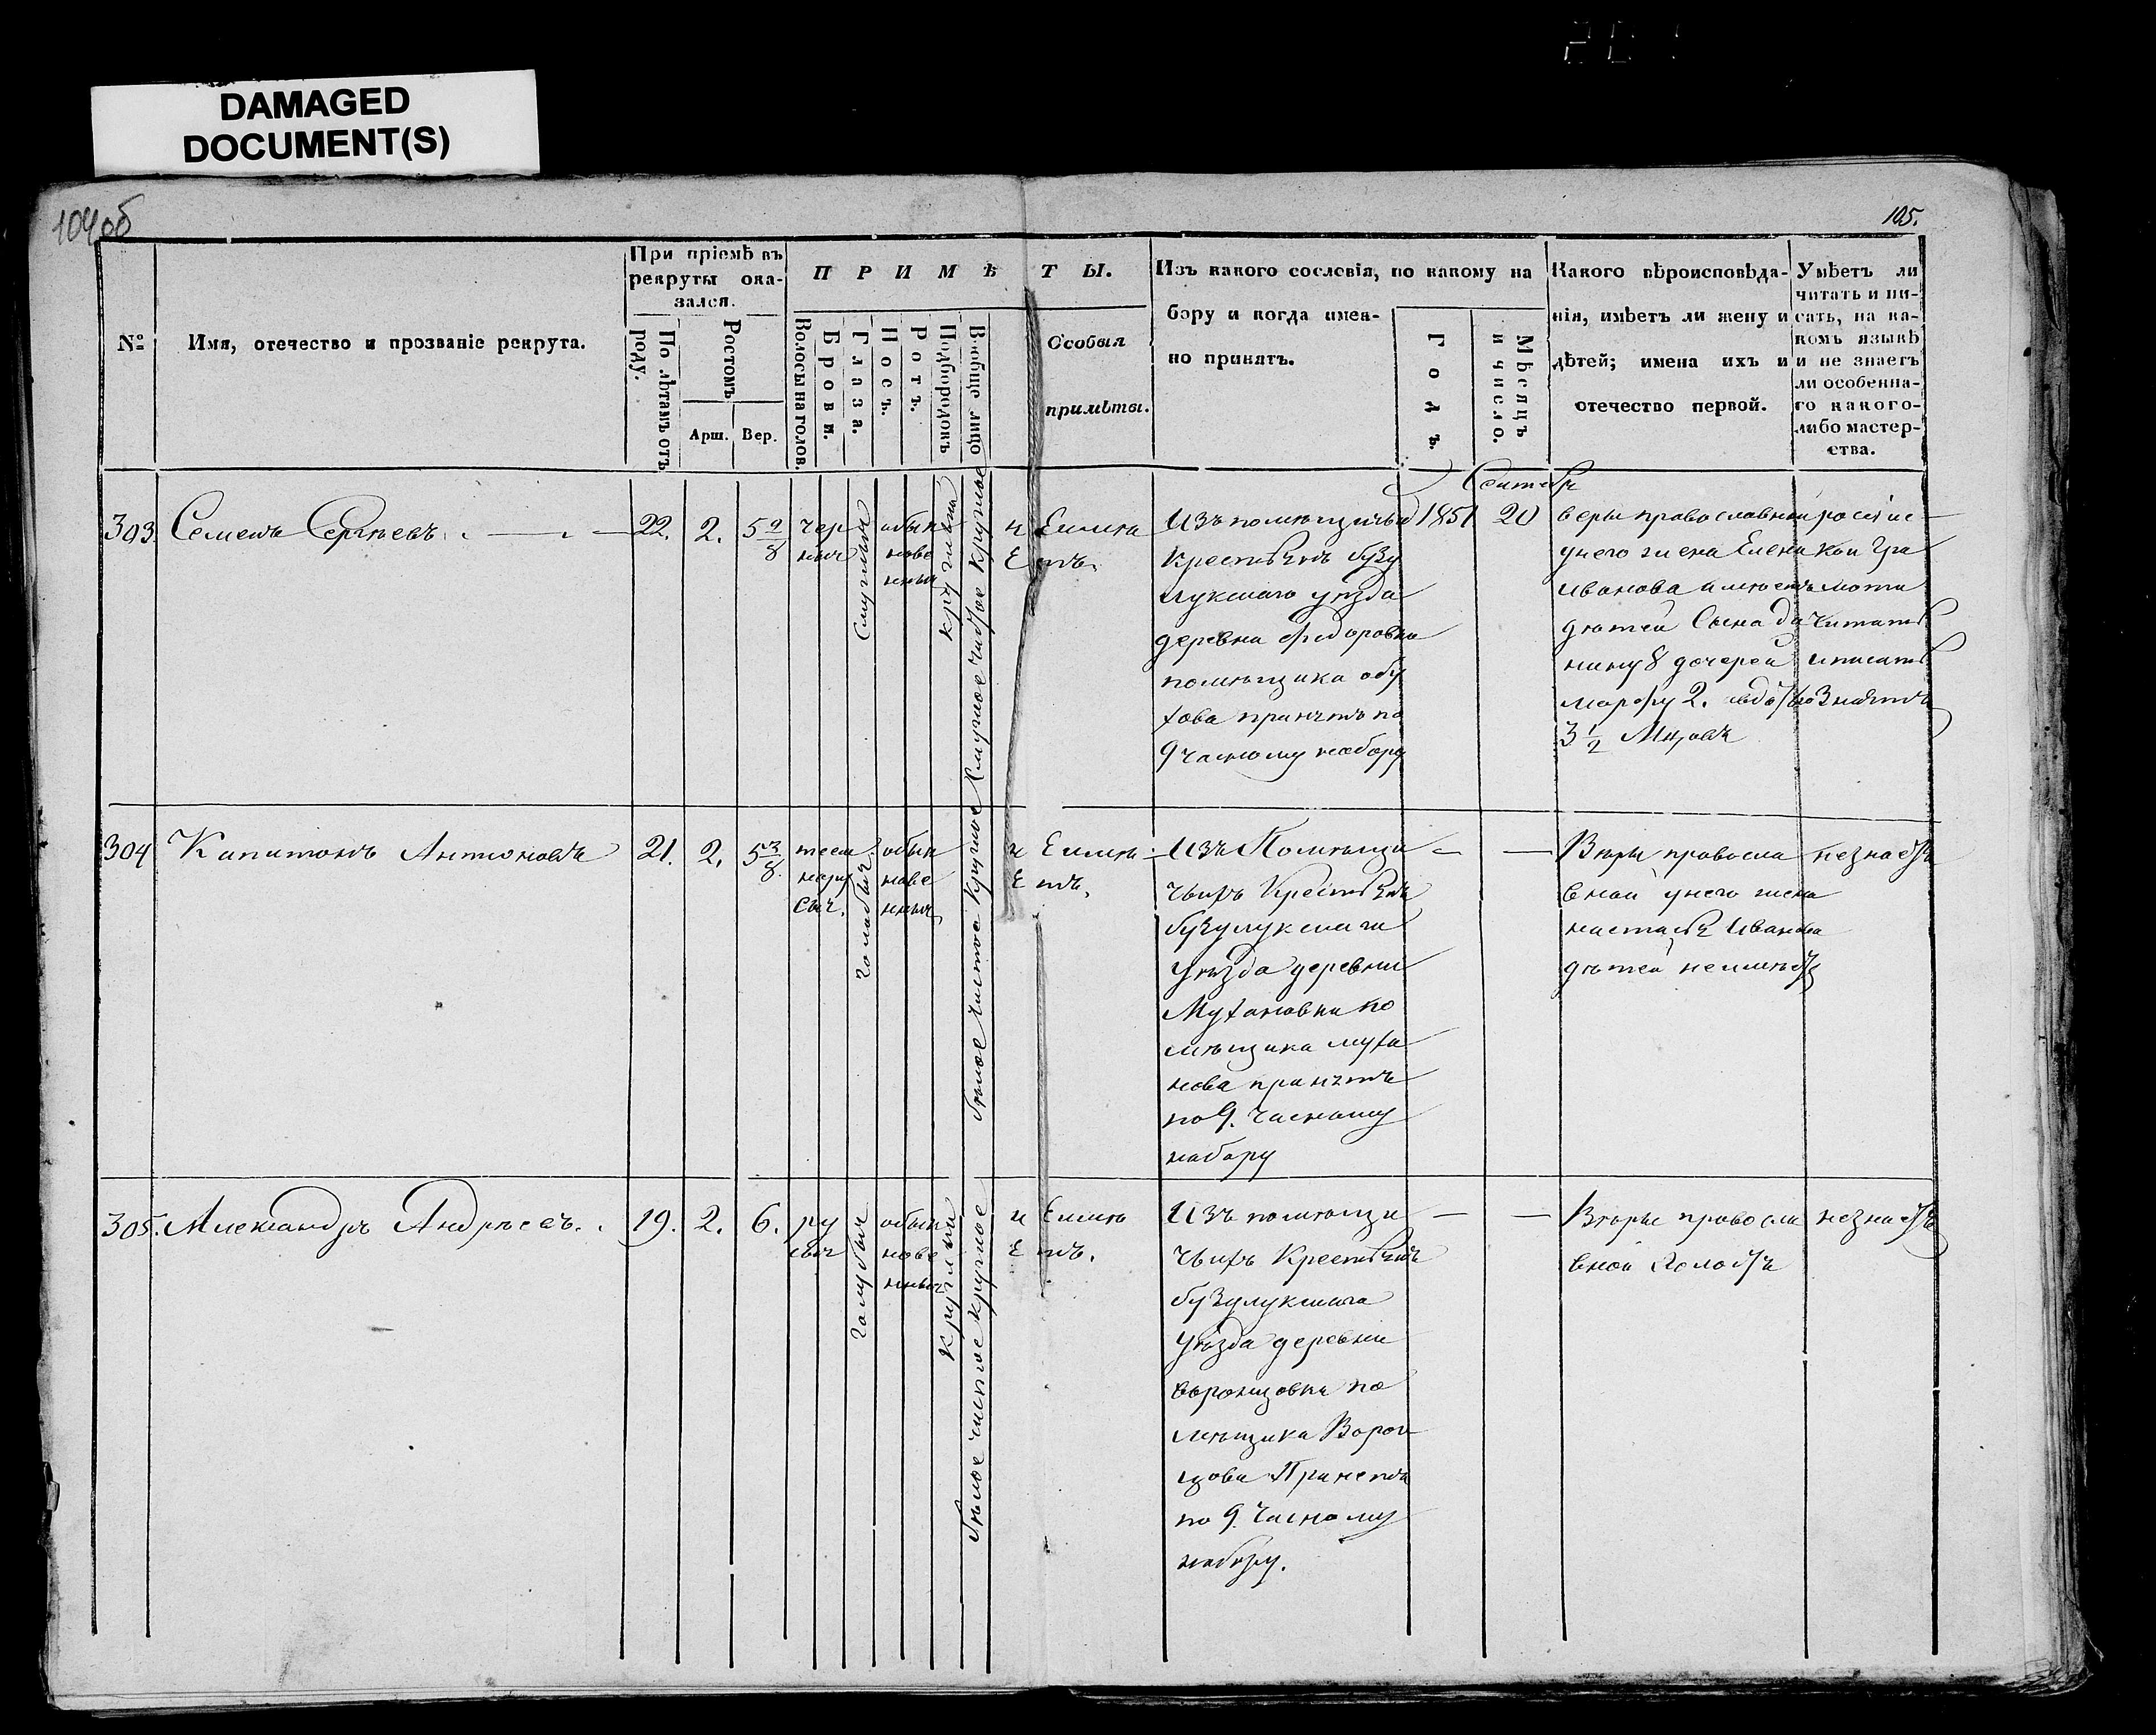 DAMAGED
DOCUMENT(S)
104об
105.
№
Имя, отечество и прозваніе рекрута.
При пріемѣ въ
рекруты ока-
зался.
По лѣтамъ отъ
роду.
Ростомъ
Арш.
Вер.
ПРИМѢТЫ.
Волосы на голов.
Брови.
Глаза.
Носъ.
Ротъ.
Подбородокъ
Вообще лицо
Особыя
примѣты.
Изъ какого сословія, по какому на
бору и когда имен-
но принятъ.
Годъ.
Мѣсяцъ
и число.
Какого вѣроисповѣда-
нія, имѣетъ ли жену и
дѣтей; имена ихъ и
отечество первой.
Умѣетъ ли
читать и пи-
сать, на ка-
комъ языкѣ
и не знаетъ
ли особенна-
го какого-
либо мастер-
ства.
303.
Семенъ Сергѣевъ
22.
2.
5 2/8
чер
ныя
обык
нове
нныя
круглой
н Еимѣ
Е тъ.
Изъ помѣщичьи
Крестьянъ бузу
лукскаго уѣзда
деревни Федоровки
помѣщика обу
хова принятъ по
9 часному набору
1851
Сентябр
20
веры православной
унего жена Елена
иванова имѣетъ
дѣтей Сына да
нилу 8 дочерей
марфу 2.
3 1/2
російс
кои гра
моти
Читать
иписать
знаетъ
304
Капитонъ Антоновъ
21.
2.
5 3/8.
темно
русыя.
обык
нове
нныя
н Еимѣ
Е тъ.
Изъ Помѣщи
чьихъ Крестьянъ
бузулукскаго
Уѣзда деревни
Мухановки по
мѣщика муха
нова принятъ
по 9. Часному
набору
Вѣры правосла
вной унего жена
настасья Иванова
дѣтей неимѣетъ
незнаетъ
305.
Александръ Андрѣевъ.
19.
2.
6.
ру
сыя
голубыя
обык
нове
нныя
круглой
бѣлое чистое круглое
н Еимѣ
Е тъ.
Изъ помѣщи
чьихъ Крестьянъ
бузулукскаго
Уѣзда деревни
воронцовки по
мѣщика Ворон
цова Принетъ
по 9. Часному
набору.
Вѣры правосла
вной Холостъ
незнаетъ